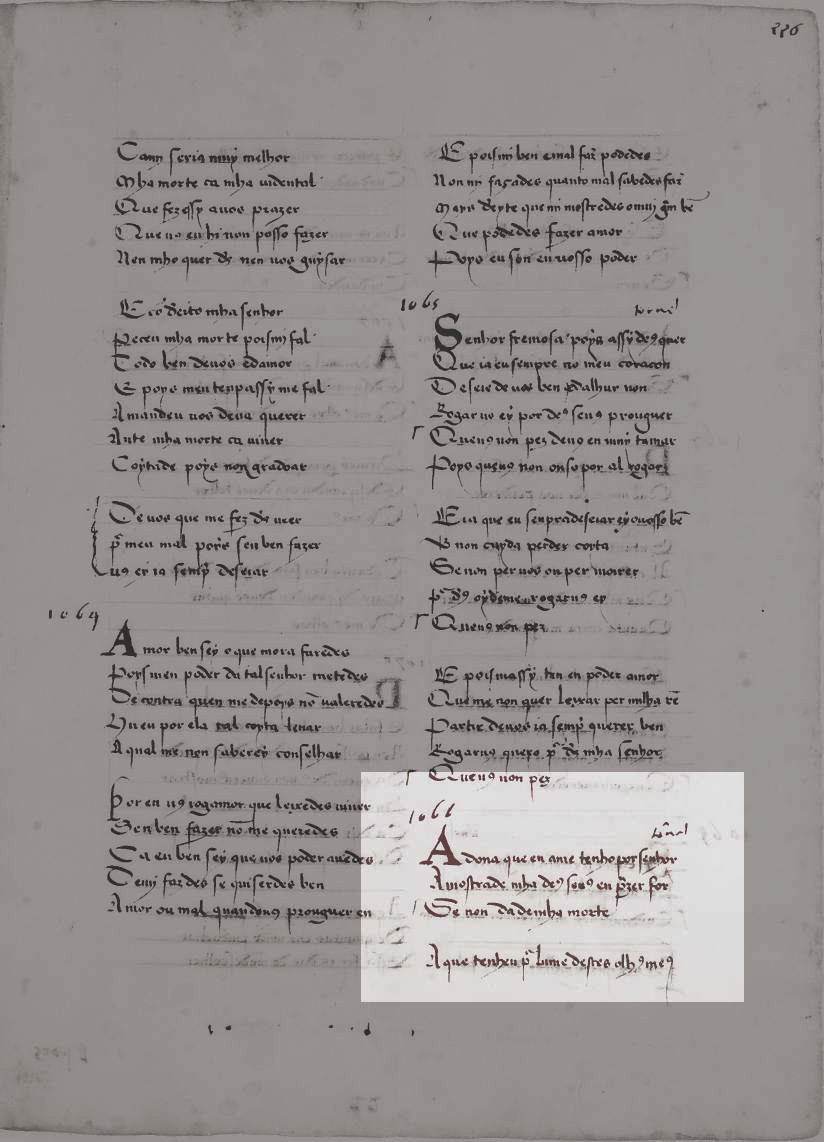 226
Caım seria muy melhor
Mha morte ca mha uidental
Que fezessy auos prazer
Que uꝯ eu hi non posso fazer
Nen mho quer d̃s nen uos guysar
E cō deito mha senhor
Receu mha morte poismi fal
Todo ben deuos edamor
E poys meu tenpassy me fal
Amandeu uos deua querer
Ante mha morte ca uiuer
Coytade poys non gradoar
De uos que me fez d̃s ueer
p̃ meu mal poys sen ben fazer
uꝯ er ia semp̃ deseiar
1064
Amor ben sey o que mora faredes
Poys men poder da tal senhor metedes
De contra quen me depoys nō ualeredes
Hu eu por ela tal coyta leuar
A qual me non saberey conselhar
Por en uꝯ rogamor que leixedes uiuer
Sen ben fazer nō me queredes
Ca eu ben sey que uos poder auedes
Demi fazdes se quiserdes ben
Amor ou mal quandouꝯ prouguer en
E poismi ben e mal faz̃ podedes
Non mi façades quanto mal sabedes faz̃
Mays deyte que mi mostredes o mui g̃m bē
Que podedes fazer amor
Poys eu son en uosso poder
1065
tornel
Senhor fremosa poys assy deꝯ quer
Que ia eu sempre no meu coraçon
Deseie de uos ben ꝑ dalhur non
Rogar uꝯ ey por deꝯ seuꝯ prouguer
Queuꝯ non pez deuo en muy tamar
Poys queuꝯ non ouso por al rogar
E ia que eu senpra deseiar ey o uosso bē
E non cuyda perder coyta
Se non per uos ou per morrer
p̃ d̃s oydeme rogaruꝯ ey
Queuꝯ non pez
E poismassy ten en poder amor
Que me non quer leixar per nulha rē
Partir deuos ia semp̃ querer ben
Rogaruꝯ quero p̃ d̃s mha senhor
Queuꝯ non pez
1066
tornel
A dona que eu ame tenho por senhor
Amostrade mha deꝯ seuꝯ en p̃zer for
Se non dademha morte
A que tenheu p̃ lume destes olhꝯ meꝯ